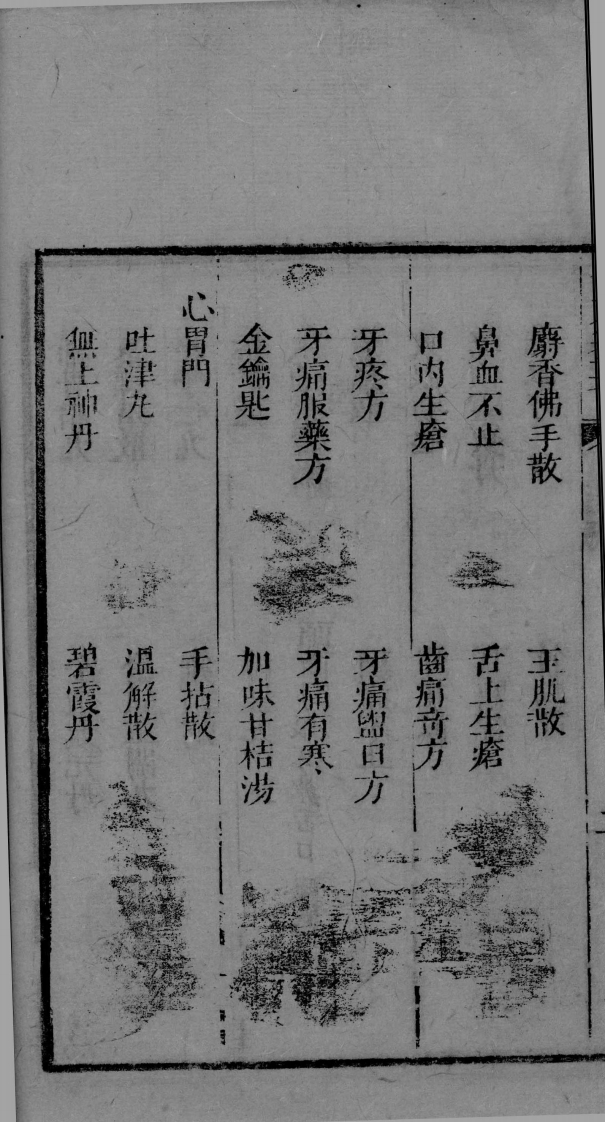 麝香佛手散　玉肌散
鼻血不止　舌上生瘡
口內生瘡　齒痛奇方
牙疼方　牙痛盥口方
牙痛服藥方　牙痛有寒
金鑰匙　加味甘桔湯
心胃門　手拈散
吐津丸　溫解散
無上神丹　碧霞丹